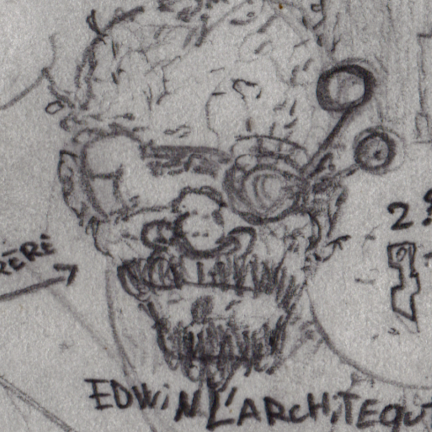 2
RÉRÉ
EDWIN L'ARCHITEQUT